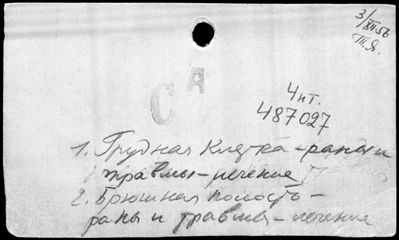 3/XII-56
Т.Я.
СА
Чит.
487027
1. Грудная клетка - раны и
травмы - лечение
2. Брюшная полость -
раны и травмы - лечение